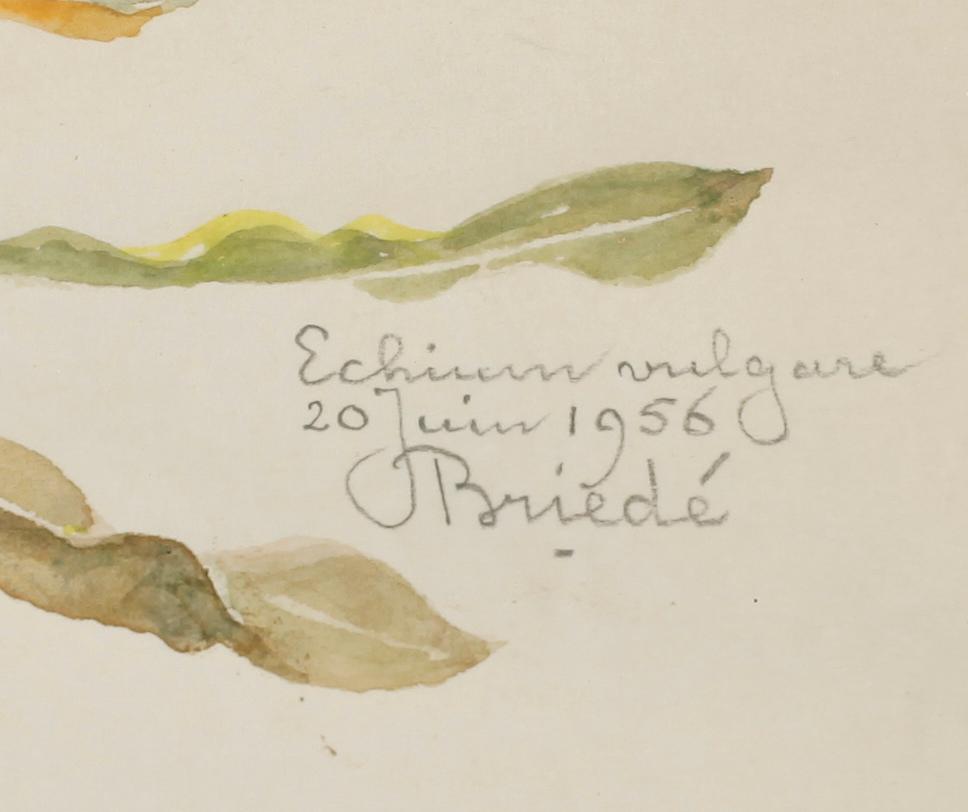 Echium vulgare
20 Juin 1956
JBriedé